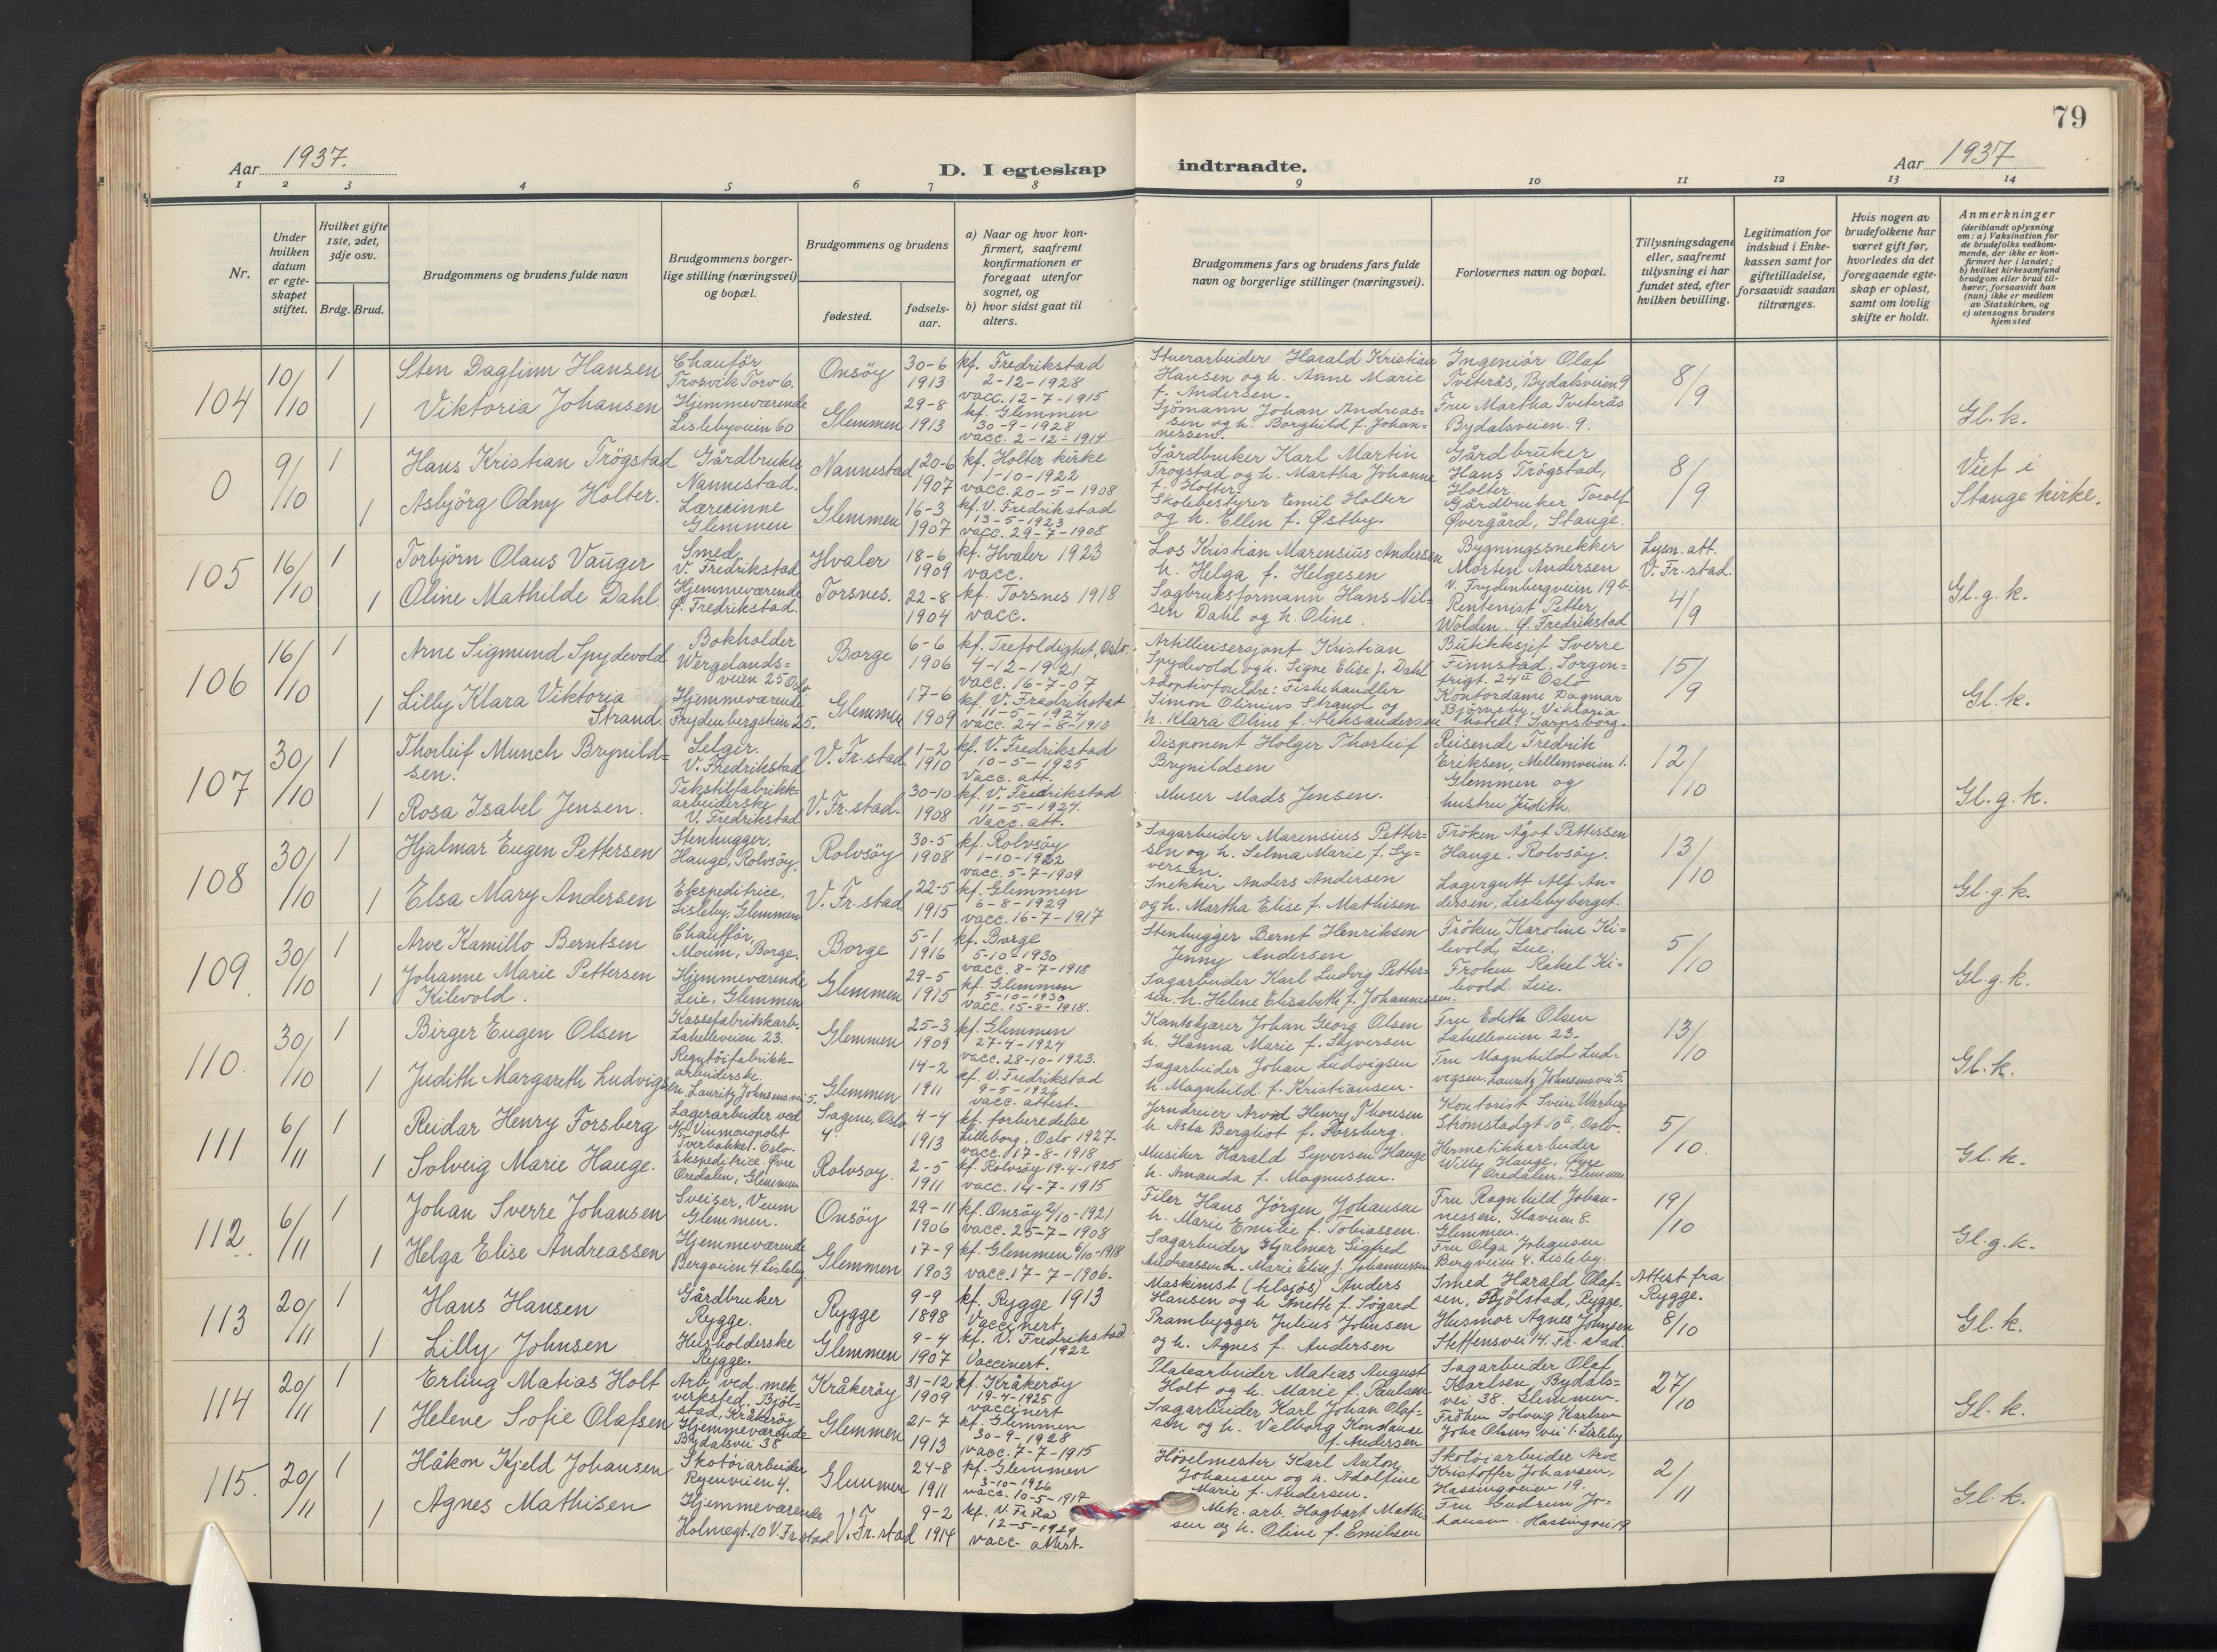 79
Aar 1937.
D. I egteskap indtraadte.
Aar 1937
1 2 3 4 5 6 7 8 9 10 11 12 13 14
Nr.
Under hvilken datum er egteskapet stiftet.
Hvilket gifte 1ste, 2det, 3dje osv.
Brdg. Brud.
Brudgommens og brudens fulde navn
Brudgommens borgerlige stilling (næringsvei) og bopæl.
Brudgommens og brudens
fødested.
fødselsaar.
a) Naar og hvor konfirmert, saafremt konfirmationen er foregaat utenfor sognet, og
b) hvor sidst gaat til alters.
Brudgommens fars og brudens fars fulde navn og borgerlige stillinger (næringsvei).
Forlovernes navn og bopæl.
Tillysningsdagene eller, saafremt tillysning ei har fundet sted, efter hvilken bevilling.
Legitimation for indskud i Enkekassen samt for giftetilladelse, forsaavidt saadan tiltrænges.
Hvis nogen av brudefolkene har været gift før, hvorledes da det foregaaende egteskap er opløst, samt om lovlig skifte er holdt.
Anmerkninger
(deriblandt oplysning om: a) Vaksination for de brudefolks vedkommende, der ikke er konfirmert her i landet; b) hvilket kirkesamfund brudgom eller brud tilhører, forsaavidt han (hun) ikke er medlem av Statskirken, og c) utensogns bruders hjemsted
104 10/10 1 Sten Dagfinn Hansen Chauför Trosvik Torv 6. Onsöy 30-6 1913 kf. Fredrikstad 2-12-1928 vacc. 12-7-1915 Stuerarbeider Harald Kristian Hansen og h. Anne Marie f. Andersen. Ingeniör Olaf Tveterås, Bydalsveien 9 8/9
1 Viktoria Johansen Hjemmeværende Lislebyveien 60 Glemmen 29-8 1913 kf. Glemmen 30-9-1928 vacc. 2-12-1914 Sjömann Johan Andreassen og h. Borghild f. Johannessen. Fru Martha Tveterås Bydalsveien 9. Gl. k.
0 9/10 1 Hans Kristian Trögstad Gårdbruker Nannestad. Nannestad 20-6 1907 kf. Holter kirke 1-10-1922 vacc. 20-5-1908 Gårdbruker Karl Martin Trogstad og h. Martha Johanne f. Holter. Gårdbruker Hans Trögstad, Holter. 8/9 Viet i Stange kirke.
1 Asbjörg Odny Holter. Lærerinne Glemmen Glemmen 16-3 1907 kf. V. Fredrikstad 13-5-1923 vacc. 29-7-1908 Skolebestyrer Emil Holter og h. Ellen f. Østby. Gårdbruker Torolf Øvergård, Stange.
105 16/10 1 Torbjörn Olaus Vauger Smed, V. Fredrikstad Hvaler 18-6 1909 kf. Hvaler 1923 vacc. Los Kristian Marensius Andersen h. Helga f. Helgesen Bygningssnekker Morten Andersen V. Frydenbergveien 19 b. Lysn. att. V. Fr. stad. 4/9
1 Oline Mathilde Dahl. Hjemmeværende Ø. Fredrikstad. Torsnes. 22-8 1904 kf. Torsnes 1918 vacc. Sagbruksformann Hans Nilsen Dahl og h. Oline. Rentenist Petter Wolden. Ø. Fredrikstad Gl. g. k.
106 16/10 1 Arne Sigmund Spydevold Bokholder Wergelandsveien 25 Oslo Borge 6-6 1906 kf. Trefoldighet, Oslo. 4-12-1921 vacc. 16-7-07 Artillerisersjant Kristian Spydevold og h. Signe Elise f. Dahl Butikksjef Sverre Finnstad. Sorgenfrigt. 24 II Oslo 15/9
1 Lilly Klara Viktoria Strand. Hjemmeværende Frydenbergstien 25. Glemmen 17-6 1909 kf. V. Fredrikstad 11-5-1924 vacc. 24-8-1910 Adoptivforeldre: Fiskehandler Simon Olinius Strand og h. Klara Oline f. Aleksandersen Kontordame Dagmar Björneby. Viktoria hotel. Sarpsborg. Gl. k.
107 30/10 1 Thorleif Munch Brynildsen. Selger. V. Fredrikstad V. Fr. stad 1-2 1910 kf. V. Fredrikstad 10-5-1925 Vacc. att. Disponent Holger Thorleif Brynildsen Reisende Fredrik Eriksen, Mellemveien 1. Glemmen og hustru Judith. 12/10
1 Rosa Isabel Jensen. Tekstilfabrikkarbeiderske V. Fredrikstad V. Fr. stad. 30-10 1908 kf. V. Fredrikstad 11-5-1924. Vacc. att. Murer Mads Jensen. Gl. g. k.
108 30/10 1 Hjalmar Eugen Pettersen Stenhugger, Hauge, Rolvsöy. Rolvsöy 30-5 1908 kf. Rolvsöy 1-10-1922 vacc. 5-7-1909 Sagarbeider Marensius Pettersen og h. Selma Marie f. Syversen. Fröken Ågot Pettersen Hauge. Rolvsöy. 13/10
1 Elsa Mary Andersen Ekspeditrice, Lisleby, Glemmen V. Fr. stad 22-5 1915 kf. Glemmen 6-8-1929 vacc. 16-7-1917 Snekker Anders Andersen og h. Martha Elise f. Mathisen Lagergutt Alf Andersen, Lislebyberget. Gl. g. k.
109 30/10 1 Arve Kamillo Berntsen Chauffør, Moum, Borge. Borge 5-1 1916 kf. Borge 5-10-1930 vacc. 8-7-1918 Stenhugger Bernt Henriksen Jenny Andersen Fröken Karoline Kilevold, Leie. 5/10
1 Johanne Marie Pettersen Kilevold. Hjemmeværende Leie, Glemmen Glemmen 29-5 1915 kf. Glemmen 5-10-1930 vacc. 15-8-1918. Sagarbeider Karl Ludvig Pettersen. h. Helene Elisabeth f. Johannessen. Froken Rakel Kilevold. Leie. Gl. g. k.
110. 30/10 1 Birger Eugen Olsen Kassefabrikkarb. Lahelleveien 23. Glemmen 25-3 1909 kf. Glemmen 27-4-1924 vacc. 28-10-1923. Kantskjærer Johan Georg Olsen h. Hanna Marie f. Skjversen Fru Edith Olsen Lahelleveien 23. 13/10
1 Judith Margareth Ludvigsen Regntöifabrikkarbeiderske Lauritz Johnsensvei 5. Glemmen 14-2 1911 kf. V. Fredrikstad 9-5-1926 vacc. attest. Sagarbeider Johan Ludvigsen h. Magnhild f. Kristiansen. Fru Magnhild Ludvigsen. Lauritz Johnsensvei 5. Gl. k.
111 6/11 1 Reidar Henry Forsberg Lagerarbeider ved A/S Vinmonopolet Tverbakkel. Oslo. Sagene, Oslo 4-4 1913 kf. forberedelse Lilleborg, Oslo 1927. vacc. 17-8-1918 Jerndreier Arvid Henry Thoresen h. Asta Bergliot f. Forsberg. Kontorist Svein Warberg Strömstadgt 10 II, Oslo. 5/10.
1 Solveig Marie Hauge. Ekspeditrice. Øvre Oredalen, Glemmen Rolvsoy. 2-5 1911 kf. Rolvsöy 19-4-1925 vacc. 14-7-1915 Musiker Harald Syversen Hauge h. Amanda f. Magnussen. Hermetikkarbeider Willy Hauge, Øvre Oredalen. Glemmen Gl. k.
112 6/11 1 Johan Sverre Johansen Sveiser, Veum Glemmen. Onsöy 29-11 1906 kf. Onsöy 2/10-1921 vacc. 25-7-1908 Filer Hans Jörgen Johansen h. Marie Emilie f. Tobiassen. Fru Ragnhild Johannessen, Haveien 8. Glemmen. 19/10
1 Helga Elise Andreassen Hjemmeværende Bergveien 4. Lisleby. Glemmen 17-9 1903 kf. Glemmen 6/10-1918 vacc. 17-7-1906. Sagarbeider Hjalmar Sigfred Andreassen h. Marie Elise f. Johannessen Fru Olga Johansen Bergveien 4. Lisleby. Gl. g. k.
113 20/11 1 Hans Hansen Gårdbruker Rygge. Rygge 9-9 1898 kf. Rygge 1913 Vaccinert. Maskinist (tilsjös) Anders Hansen og h. Anette f. Sögard Smed Harald Olafsen, Fjölstad, Rygge. Attest fra Rygge. 8/10
1 Lilly Johnsen Husholderske Rygge. Glemmen 9-4 1907 kf. V. Fredrikstad. 1922 Vaccinert. Prambygger Julius Johnsen og h. Agnes f. Andersen Husmor Agnes Johnsen Steffensvei 14. Fr. stad. Gl. k.
114 20/11 1 Erling Matias Holt Arb. ved. mek. verksted. Björstad, Kråkeröy Kråkeröy 31-12 1909 kf. Kråkeröy 19-4-1925 vaccinert Platearbeider Matias August Holt og h. Marie f. Paulsen Sagarbeider Olaf Karlsen, Bydalsvei 38. Glemmen. 27/10
1 Helene Sofie Olafsen Hjemmeværende Bydalsvei 38 Glemmen 21-7 1913 kf. Glemmen 30-9-1928 vacc. 7-7-1915 Sagarbeider Karl Johan Olafsen og h. Valborg Konstanse f. Andersen Fröken Solveig Karlsen Johs Olsens vei 1. Lisleby Gl. k.
115. 20/11 1 Håkon Kjeld Johansen Skotöiarbeider Ryenveien 4. Glemmen 24-8 1911 kf. Glemmen 3-10-1926 vacc. 10-5-1917 Hövelmester Karl Anton Johansen og h. Adolfine Marie f. Andersen. Skotöiarbeider Arve Kristoffer Johansen, Hassingveien 19. 2/11
1 Agnes Mathisen Hjemmeværende Holmegt. 10 V. Fr. stad V. Fr. stad 9-2 1914 kf. V. Fr. sta 12-5-1929 vacc. attest. Mek. arb. Hagbart Mathisen og h. Oline f. Emilsen Fru Gudrun Johansen. Hassingvei 19 Gl. k.